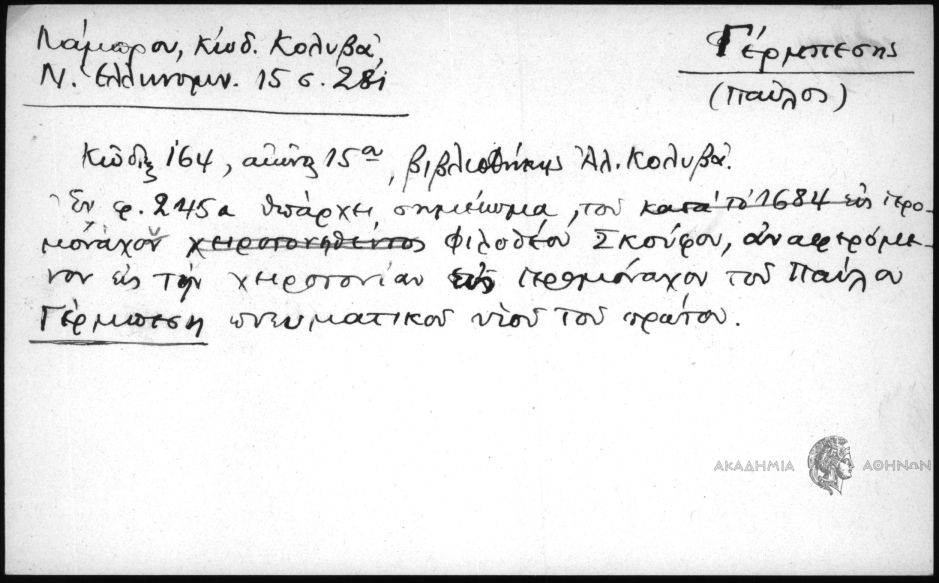 Λάμπρου, Κώδ. Κολυβᾶ
Ν. Ἑλληνομν. 15 σ. 281
Γέρμπεσης
(Παῦλος)
Κῶδιξ 164, αἰῶνος 15ου, βιβλιοθήκης Ἀλ. Κολυβᾶ.
Ἐν φ. 245α ὑπάρχει σημείωμα, τοῦ κατὰ τὸ 1684 εἰς ἱερο-
μόναχον χειροτονηθέντος Φιλοθέου Σκούφου, ἀναφερόμε-
νον εἰς τὴν χειροτονίαν εἰς ἱερομόναχον τοῦ Παύλου
Γέρμπεση πνευματικοῦ υἱοῦ τοῦ πρώτου.
ΑΚΑΔΗΜΙΑ ΑΘΗΝΩΝ